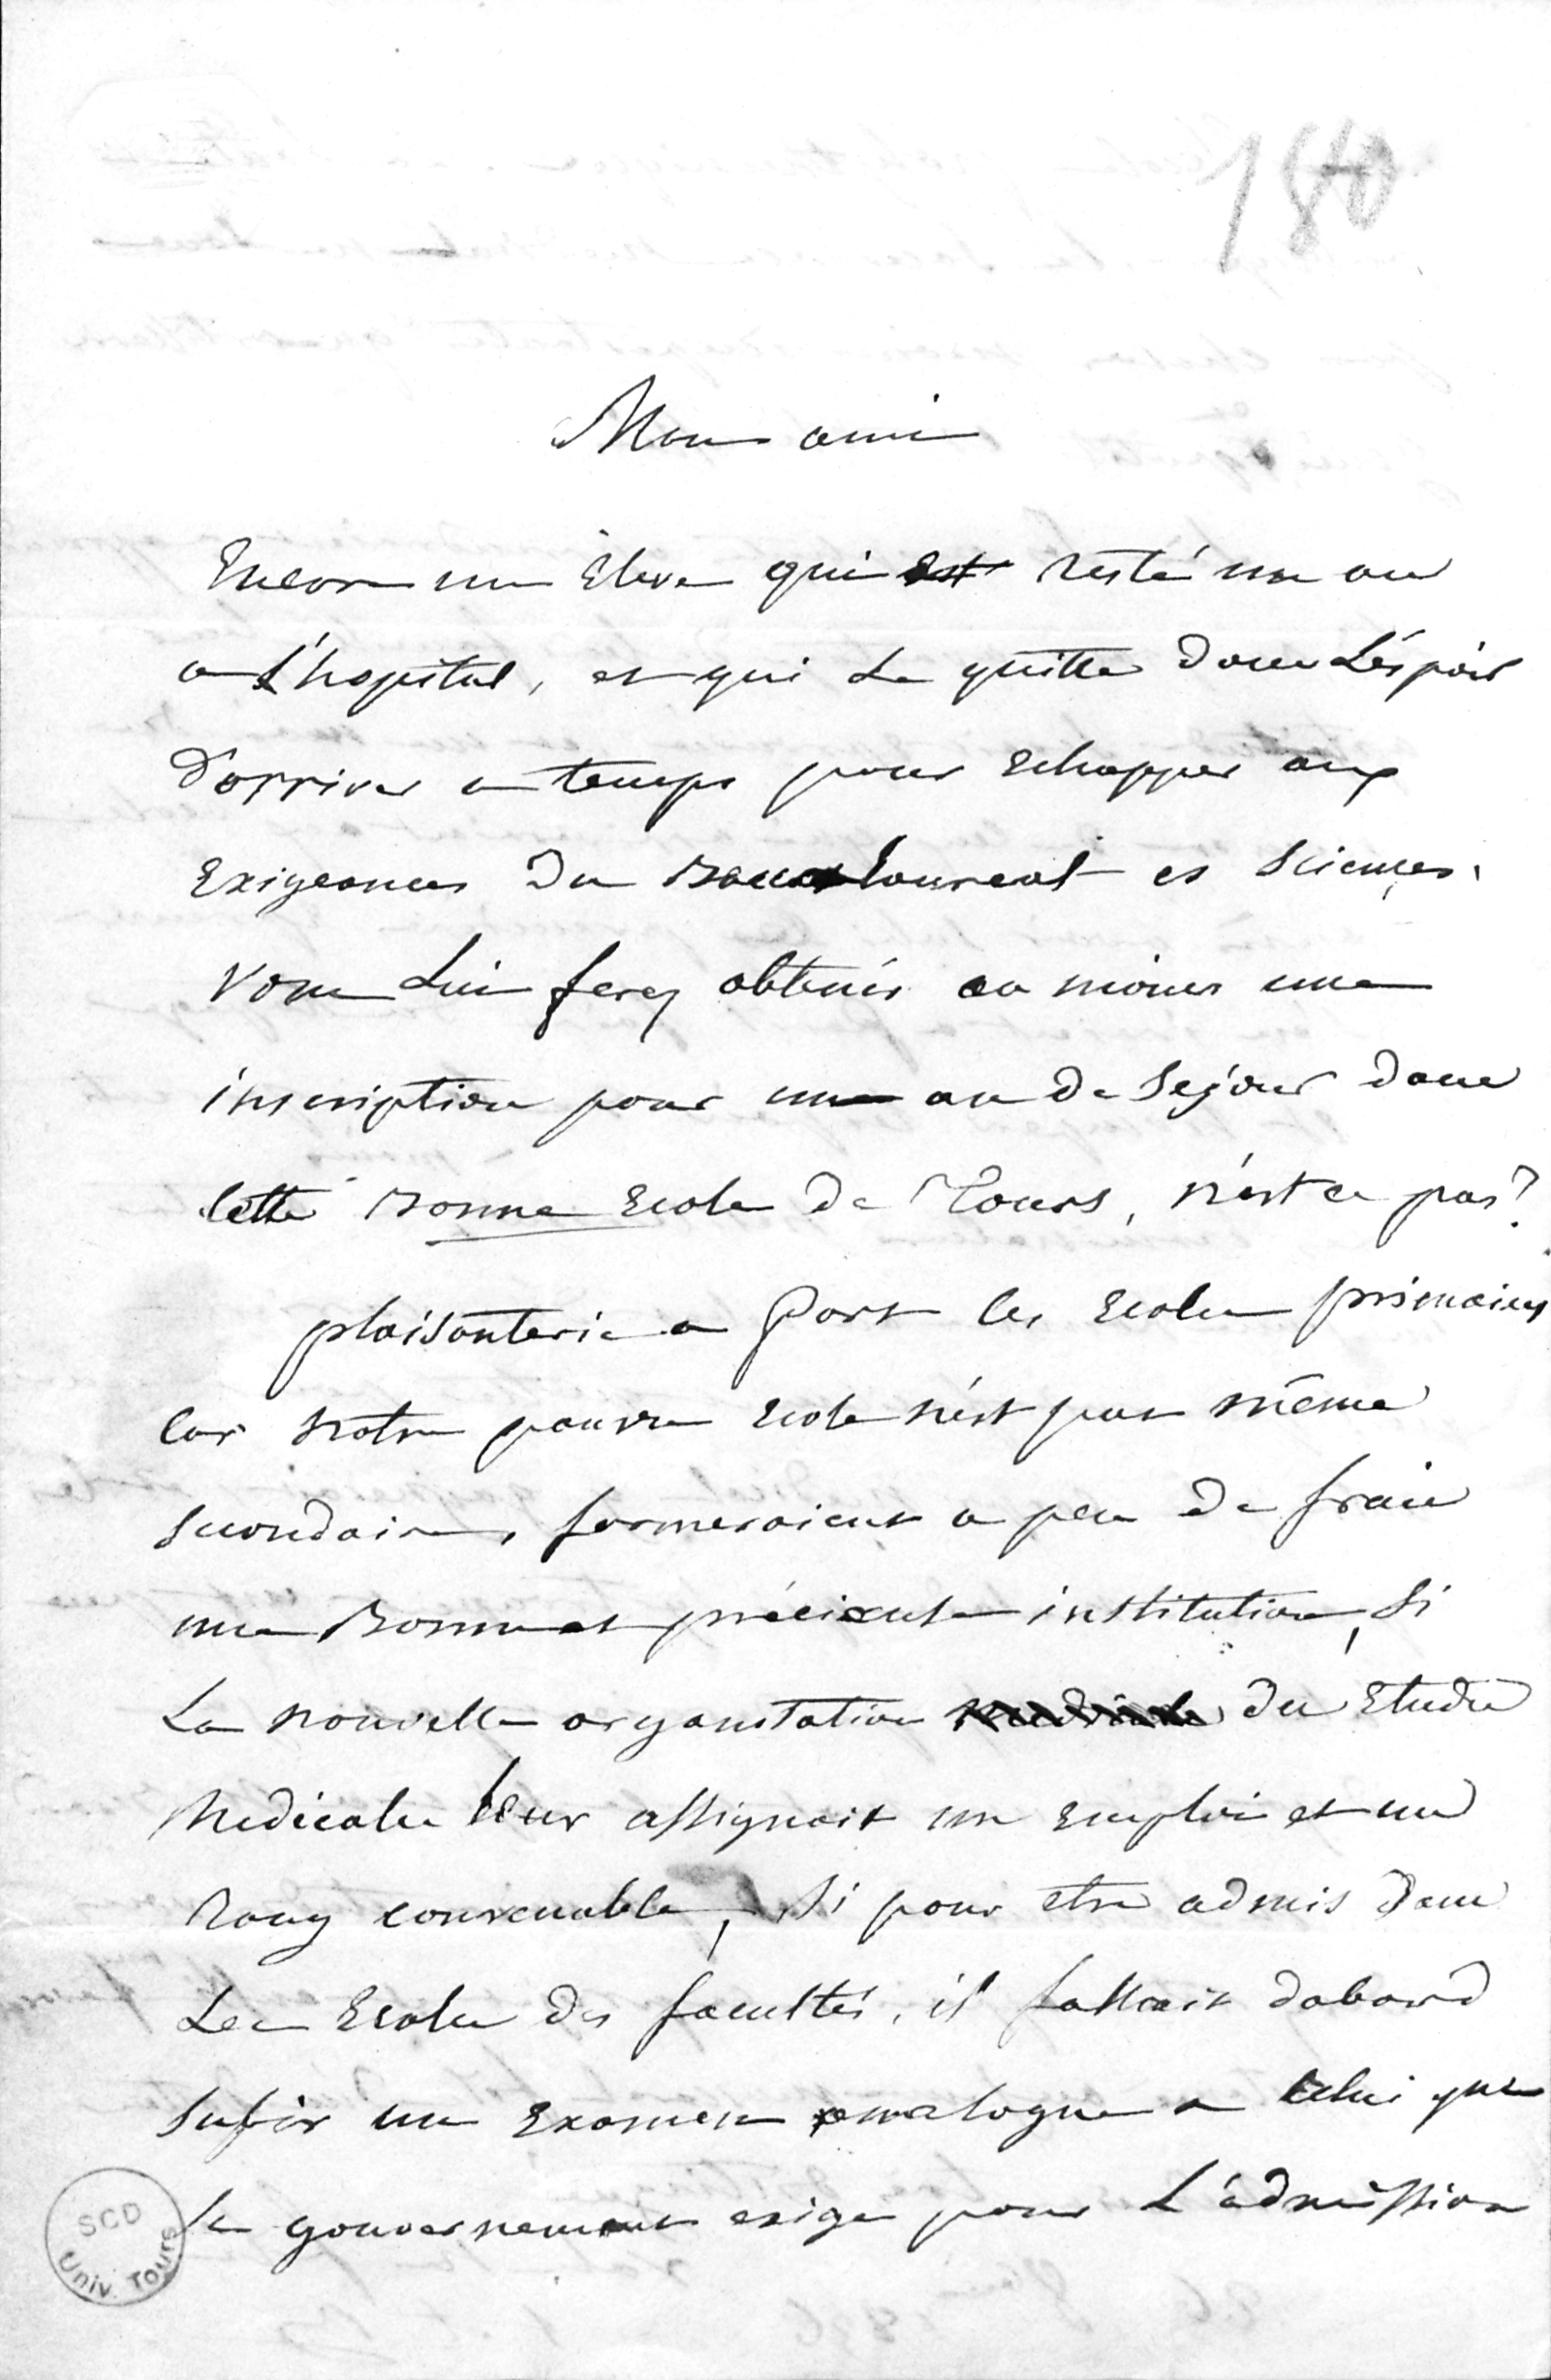 180
Mon ami
Encore un Eleve qui est resté un an
a L'hopital, et qui Le quitte dans L'éspoir
d'arriver a temps pour Echapper aux
Exigeances du Baccalaureat es Sciences.
Vous Lui ferez obtenir au moins une
inscription pour un an de Sejour dans
cette Bonne Ecole de Tours, n'est ce pas?
plaisanterie a Part les Ecoles primaires
Car notre pauvre Ecole n'est pas même
Secondaire, formeraient a peu de frais
une Bonne et précieuse institution, Si
La nouvelle organisation des Etudes
Medicales leur assignait un Emploi et un
rang convenable, Si pour etre admis dans
Les Ecoles des facultés, il fallait dabord
Subir un Examen analogue a Celui que
le gouvernement exige pour L'admission
SCD
Univ. Tours